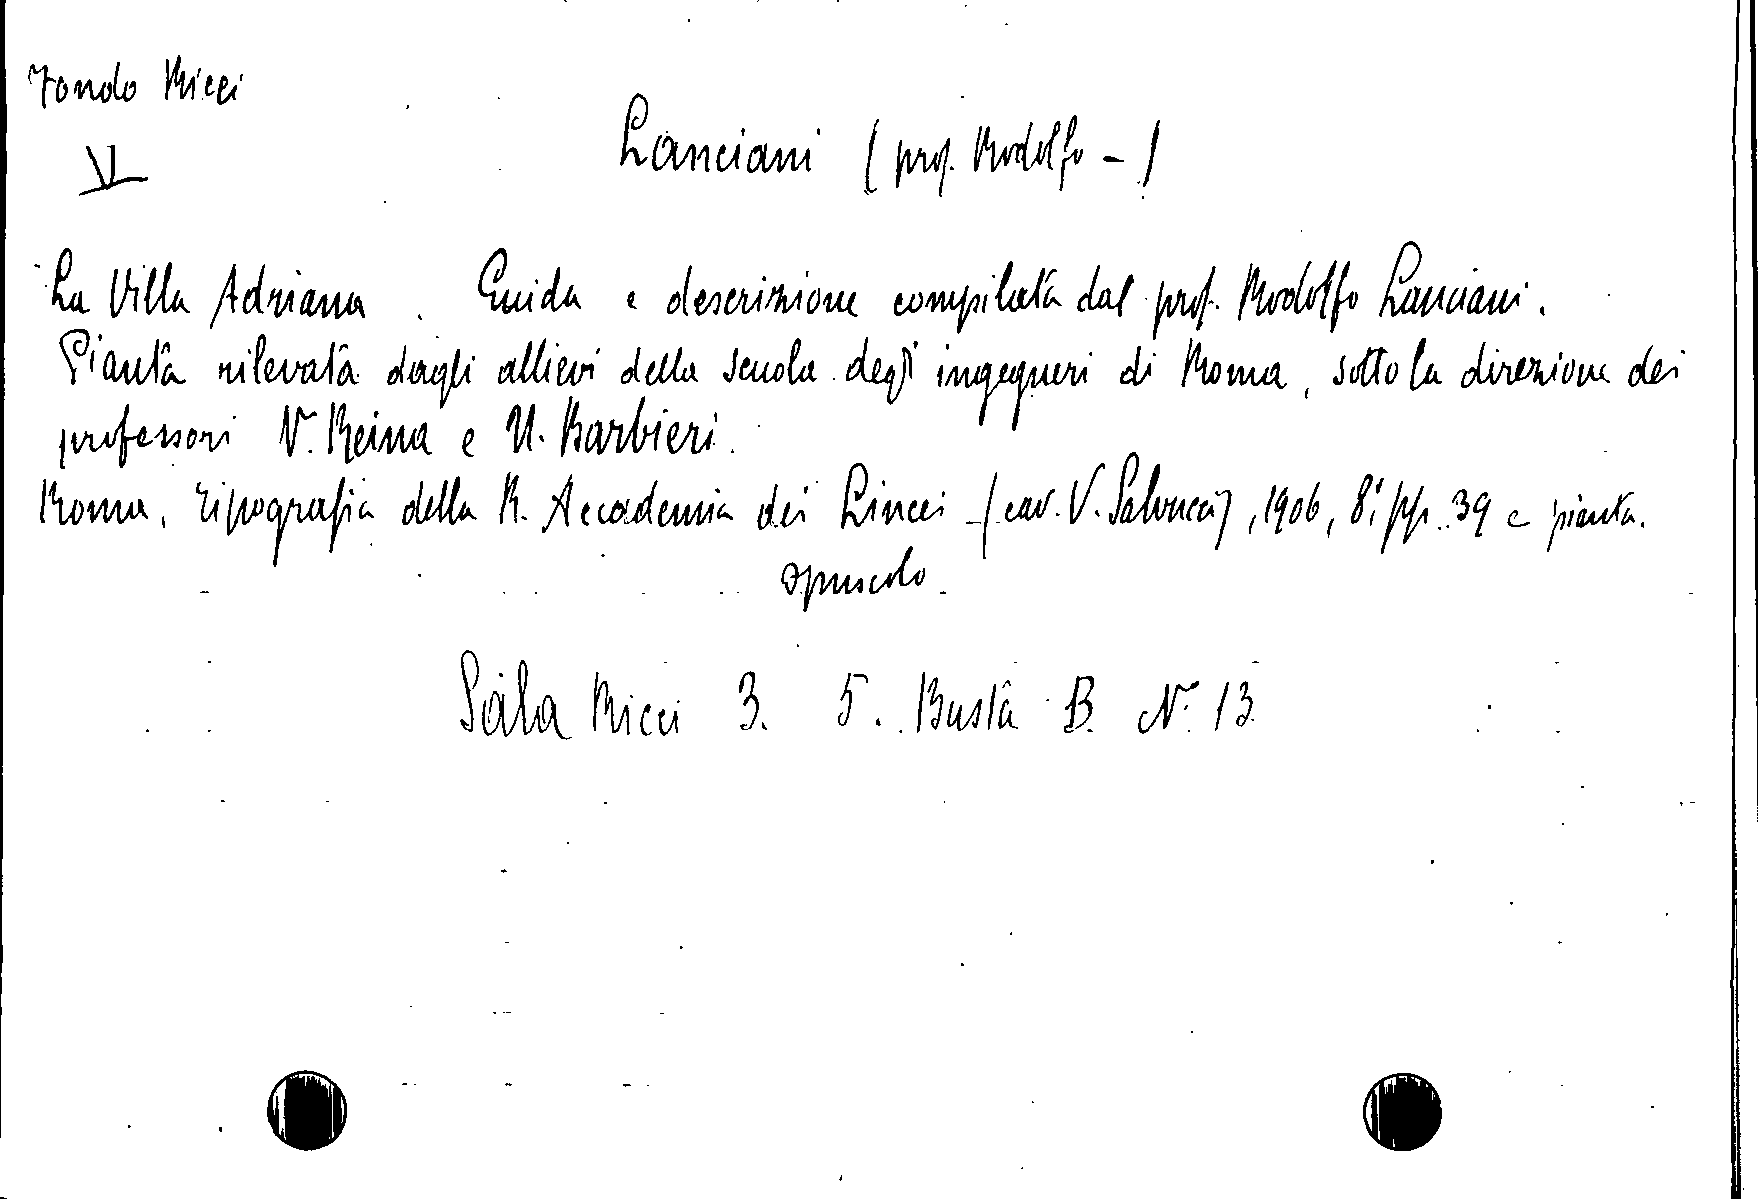 Fondo Ricci
V
Lanciani (prof. Rodolfo - )
La Villa Adriana. Guida e descrizione compilata dal prof. Rodolfo Lanciani.
Pianta rilevata dagli allievi della scuola degl' ingegneri di Roma, sotto la direzione dei
professori V. Reina e U. Barbieri.
Roma, tipografia della R. Accademia dei Lincei (cav. V. Salvucci), 1906, 8°, pp. 39 e pianta.
opuscolo.
Sala Ricci 3. 5. Busta B. N. 13